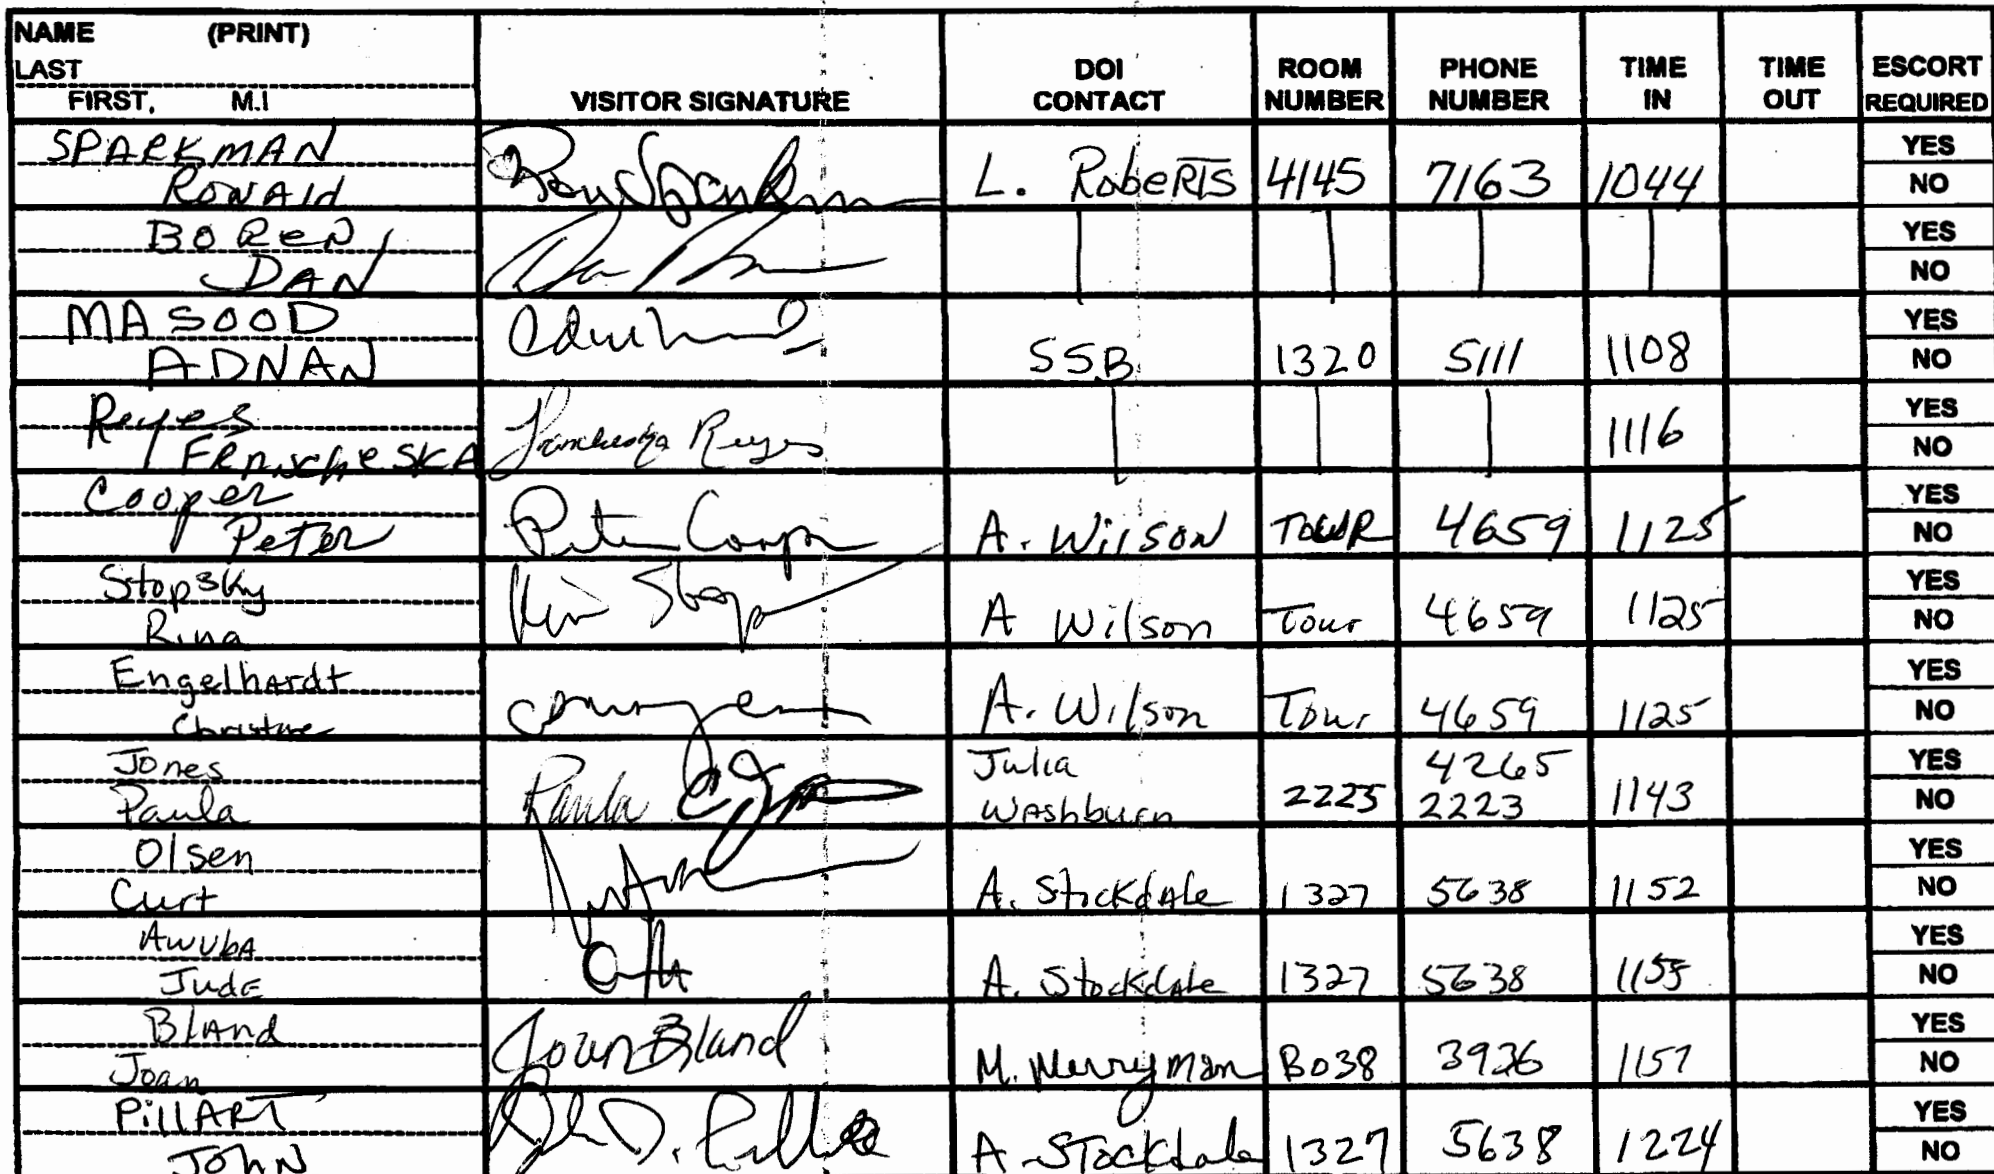 NAME (PRINT)
LAST
FIRST, M.I
VISITOR SIGNATURE
DOI CONTACT
ROOM NUMBER
PHONE NUMBER
TIME IN
TIME OUT
ESCORT REQUIRED
SPARKMAN
RONAld
L. RobeRTS 4145 7163 1044
YES
NO
BOReN,
DAN
YES
NO
MASOOD
ADNAN
SSB 1320 5111 1108
YES
NO
Reyes
FRANcheSKA
Francheska Reyes
1116
YES
NO
Cooper
Peter
Peter Cooper
A. Wilson TOUR 4659 1125
YES
NO
Stopsky
Rina
A Wilson Tour 4659 1125
YES
NO
Engelhardt
Christine
A. Wilson Tour 4659 1125
YES
NO
Jones
Paula
Paula
Julia
Washburn
2225
4265
2223
1143
YES
NO
Olsen
Curt
A. Stockdale 1327 5638 1152
YES
NO
Awuba
Jude
A. Stockdale 1327 5638 1155
YES
NO
Bland
Joan
Joan Bland
M. Merryman B038 3936 1157
YES
NO
PillART
JOHN
A. Stockdale 1327 5638 1224
YES
NO